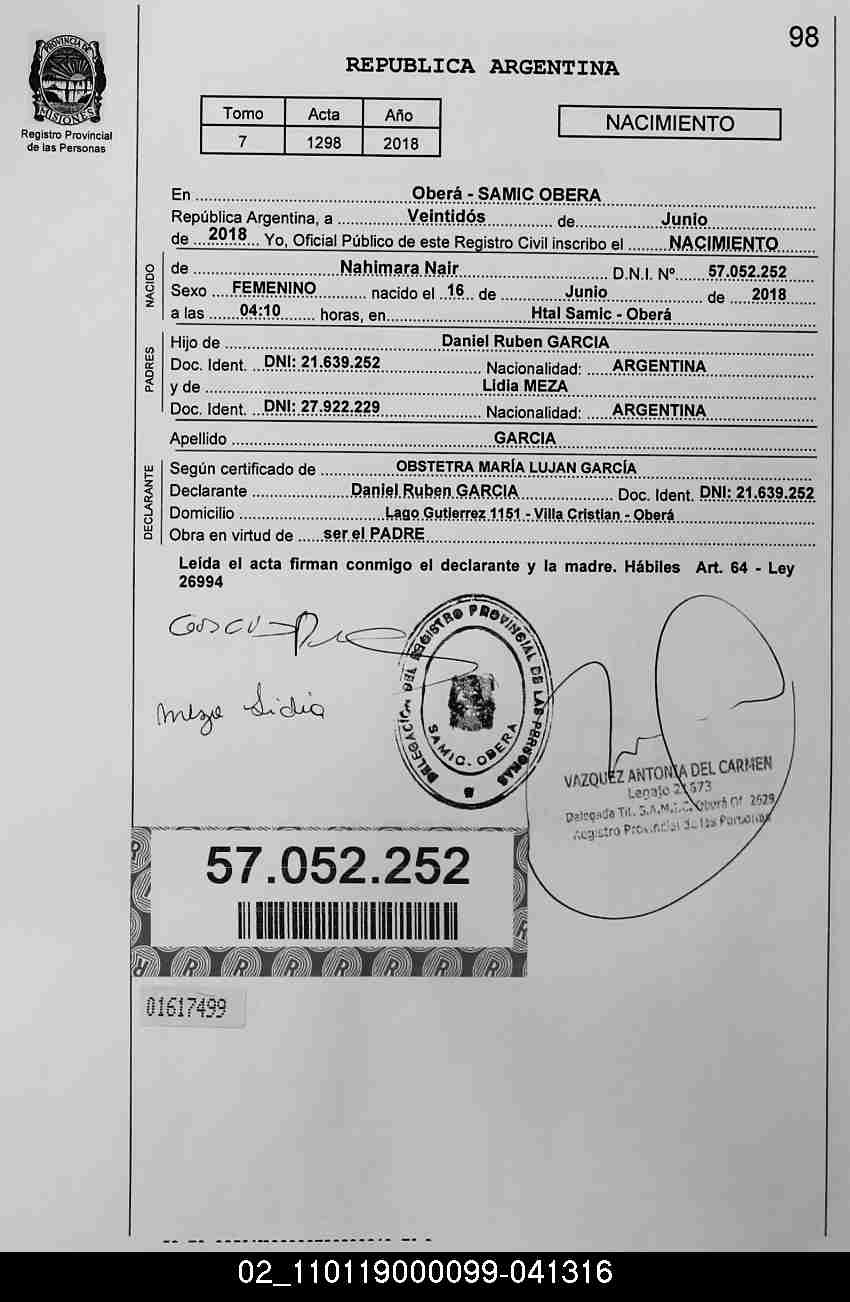 98
PROVINCIA DE
MISIONES
Registro Provincial
de las Personas
REPUBLICA ARGENTINA
Tomo Acta Año
7 1298 2018
NACIMIENTO
En Oberá - SAMIC OBERA
República Argentina, a Veintidós de Junio
de 2018 Yo, Oficial Público de este Registro Civil inscribo el NACIMIENTO
NACIDO
de Nahimara Nair D.N.I. Nº 57.052.252
Sexo FEMENINO nacido el 16 de Junio de 2018
a las 04:10 horas, en Htal Samic - Oberá
PADRES
Hijo de Daniel Ruben GARCIA
Doc. Ident. DNI: 21.639.252 Nacionalidad: ARGENTINA
y de Lidia MEZA
Doc. Ident. DNI: 27.922.229 Nacionalidad: ARGENTINA
Apellido GARCIA
DECLARANTE
Según certificado de OBSTETRA MARÍA LUJAN GARCÍA
Declarante Daniel Ruben GARCIA Doc. Ident. DNI: 21.639.252
Domicilio Lago Gutierrez 1151 - Villa Cristian - Oberá
Obra en virtud de ser el PADRE
Leída el acta firman conmigo el declarante y la madre. Hábiles Art. 64 - Ley
26994
DELEGACION DEL REGISTRO PROVINCIAL DE LAS PERSONAS
SAMIC. OBERA
Meza Lidia
VAZQUEZ ANTONIA DEL CARMEN
Legajo
Delegada Tit. S.A.M.I.C. Oberá Of. 2629
Registro Provincial de las Personas
57.052.252
R R R R R R R R
01617499
02_110119000099-041316